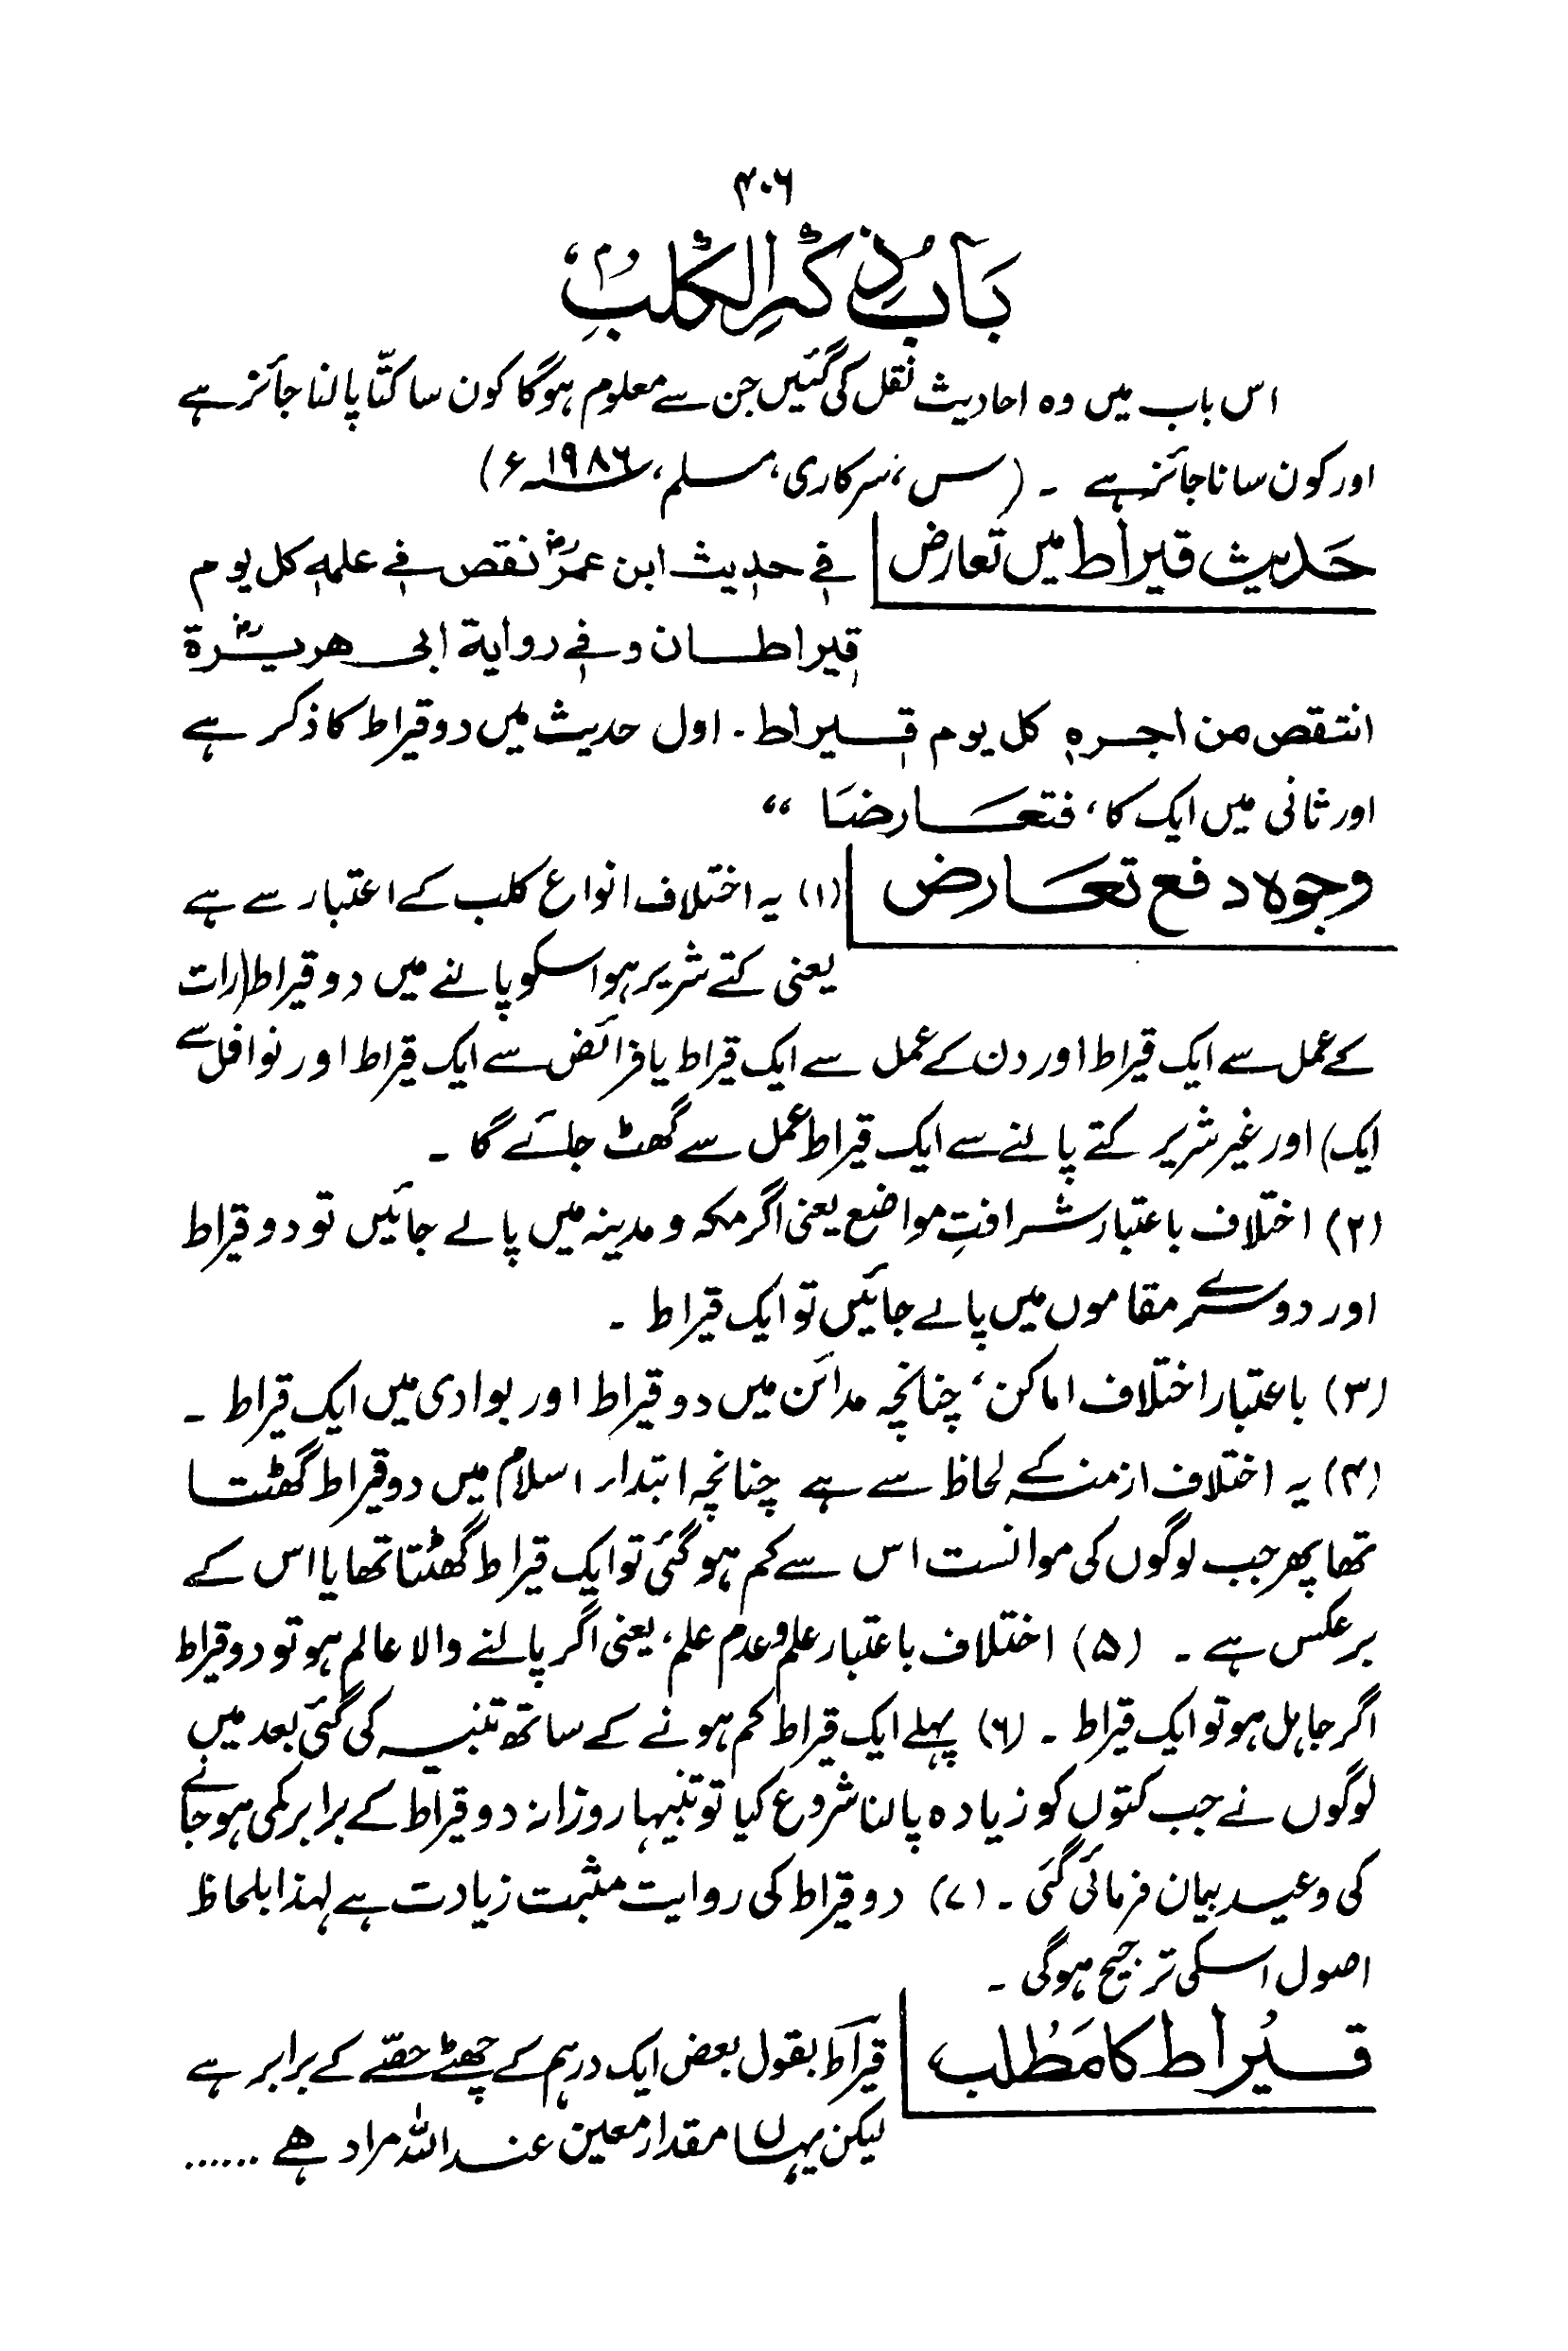 ۴۰۶
بَابُ ذِكْرِ الْكَلْبِ
اس باب میں وہ احادیث نقل کی گئیں جن سے معلوم ہوگا کون سا کتّا پالنا جائز ہے
اور کون سا ناجائز ہے ۔ (س، سرکاری، مسلم، ۱۹۸۶؁ء)
حَدیث قیراط میں تعارض | فی حدیث ابن عمرؓ نقص فی عملہٖ کل یوم
قیراطان وفی روایة ابی هریرةؓ
انتقص من اجرہٖ کل یوم قیراط ۔ اول حدیث میں دو قیراط کا ذکر ہے
اور ثانی میں ایک کا، فتعَارضَا ”
وجوہ دفع تعَارض | (۱) یہ اختلاف انواع کلب کے اعتبار سے ہے
یعنی کتے شریر ہو اسکو پالنے میں دو قیراط (رات
کے عمل سے ایک قیراط اور دن کے عمل سے ایک قیراط یا فرائض سے ایک قیراط اور نوافل سے
ایک) اور غیر شریر کتے پالنے سے ایک قیراط عمل سے گھٹ جائے گا ۔
(۲) اختلاف باعتبار شرافتِ مواضع یعنی اگر مکہ و مدینہ میں پالے جائیں تو دو قیراط
اور دوسرے مقاموں میں پالے جائیں تو ایک قیراط ۔
(۳) باعتبار اختلاف اماکن، چنانچہ مدائن میں دو قیراط اور بوادی میں ایک قیراط ۔
(۴) یہ اختلاف ازمنہ کے لحاظ سے ہے چنانچہ ابتداء اسلام میں دو قیراط گھٹتا
تھا پھر جب لوگوں کی موانست اس سے کم ہوگئی تو ایک قیراط گھٹتا تھا یا اس کے
برعکس ہے ۔ (۵) اختلاف باعتبار علم و عدم علم، یعنی اگر پالنے والا عالم ہو تو دو قیراط
اگر جاہل ہو تو ایک قیراط ۔ (۶) پہلے ایک قیراط کم ہونے کے ساتھ تنبیہ کی گئی بعد میں
لوگوں نے جب کتوں کو زیادہ پالنا شروع کیا تو تنبیہا روزانہ دو قیراط کے برابر کمی ہو جانے
کی وعید بیان فرمائی گئی ۔ (۷) دو قیراط کی روایت مثبت زیادت ہے لہذا بلحاظ
اصول اسکی ترجیح ہوگی ۔
قیْراط کا مَطْلب | قیراط بقول بعض ایک درہم کے چھٹے حصّے کے برابر ہے
لیکن یہاں مقدار معین عند اللہ مراد ھے ......